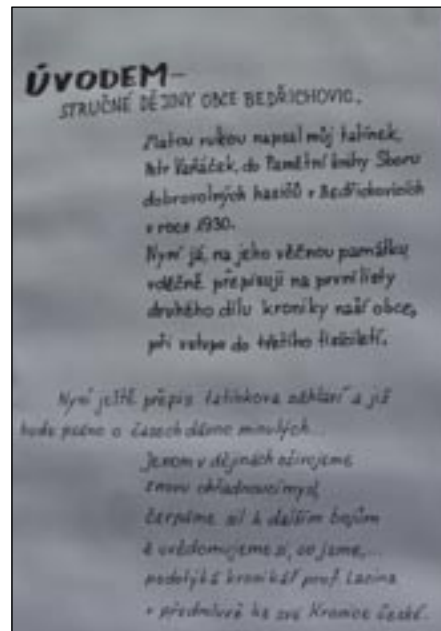 ÚVODEM –
STRUČNÉ DĚJINY OBCE BEDŘICHOVIC.
Zlatou rukou napsal můj tatínek,
Petr Vaňáček, do Pamětní knihy Sboru
dobrovolných hasičů v Bedřichovicích
v roce 1930.
Nyní já, na jeho věčnou památku,
vděčně přepisuji na první listy
druhého dílu kroniky naší obce,
při vstupu do třetího tisíciletí.
Nyní ještě přepis tatínkova záhlaví a již
bude psáno o časech dávno minulých...
Jenom v dějinách ožívujeme,
znovu mysl,
čerpáme sil k dalším bojům
a uvědomujeme si, co jsme,...
podotýká kronikář prof. Lacina
v předmluvě ke své Kronice české.